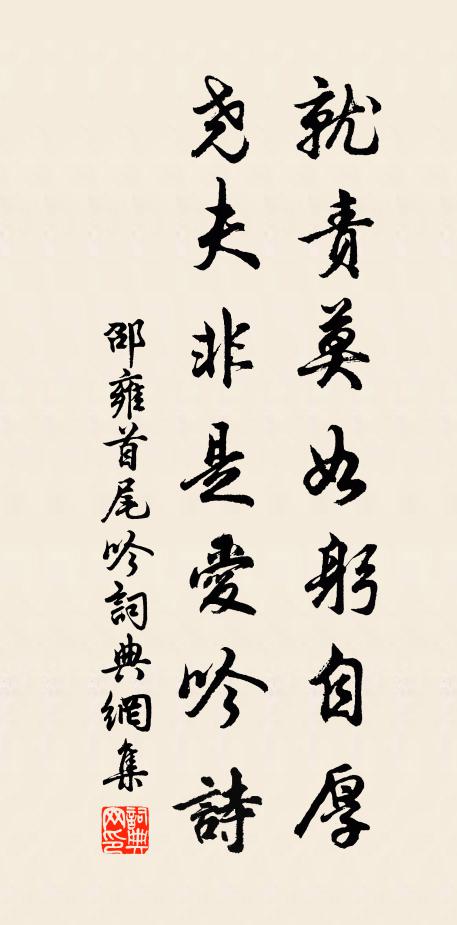 就責莫如躬自厚
堯夫非是愛吟詩
邵雍首尾吟詞典網集
詞典網印